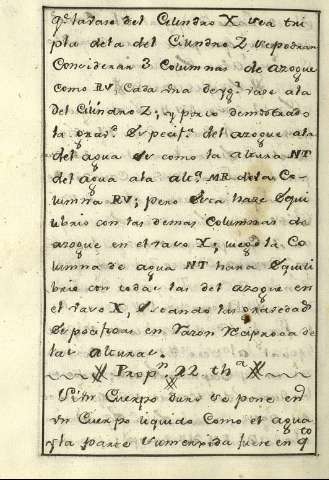 q.e la vase del Cilindro X sea tri
pla de la del Cilindro Z, se podran
Considerar 3 Columnas de azogue
como RV, Cada una de yg.l vase a la
del Cilindro Z; y por lo demostrado
la grav.d Espesif.a del azogue a la
del agua Es como la altura NT
del agua a la alt.a MR de la Co-
lumna RV; pero Esta haze Equi
librio con las demas Columnas de
azogue en el vaso X; luego la Co
lumna de agua NT hara Equili
brio con todas las del azogue en
el vaso X, Estando las gravedad.s
Espesificas en Razon Reciproca de
las alturas.
Propn. 22 tha.
Si un Cuerpo duro se pone en
un Cuerpo liquido Como el agua
y la parte sumergida fuere en q.to